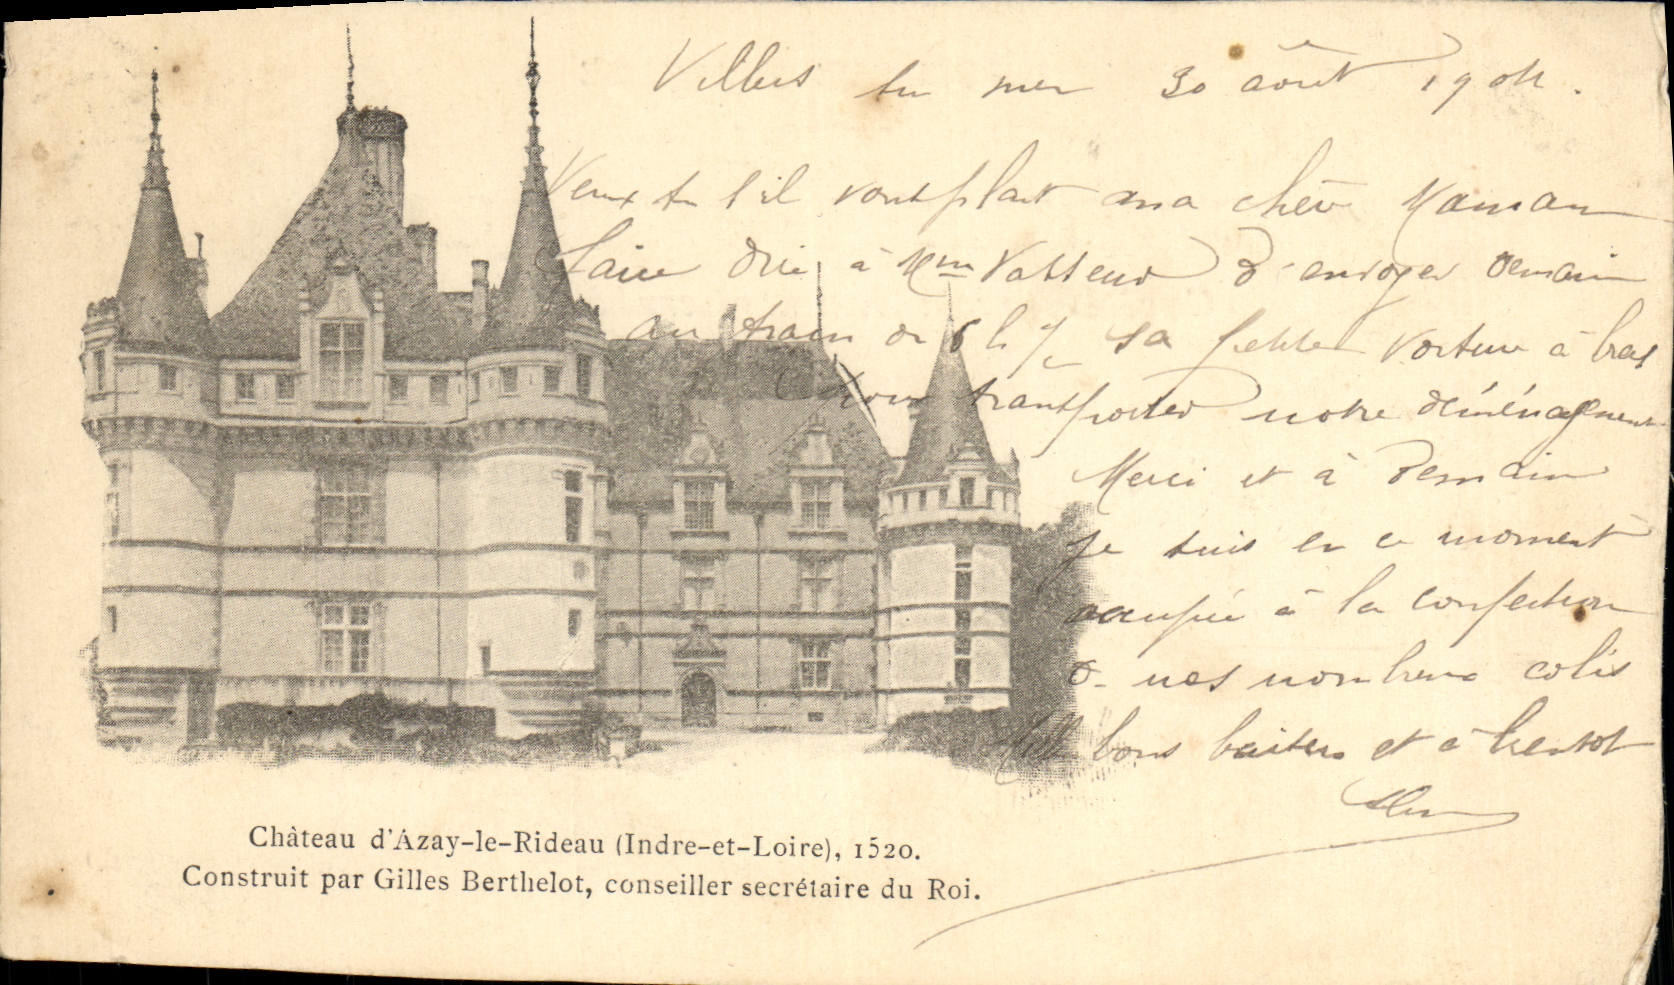 Villers su mer 30 août 1904.
Veux tu s'il vous plait ma chère Maman
faire dire à Mme Vasseur d'envoyer demain
au train de 6 h ½ sa petite voiture à bras
pour transporter notre déménagement
Merci et à demain
je suis en ce moment
occupée à la confection
de nos nombreux colis
Mille bons baisers et à bientot
Château d'Azay-le-Rideau (Indre-et-Loire), 1520.
Construit par Gilles Berthelot, conseiller secrétaire du Roi.